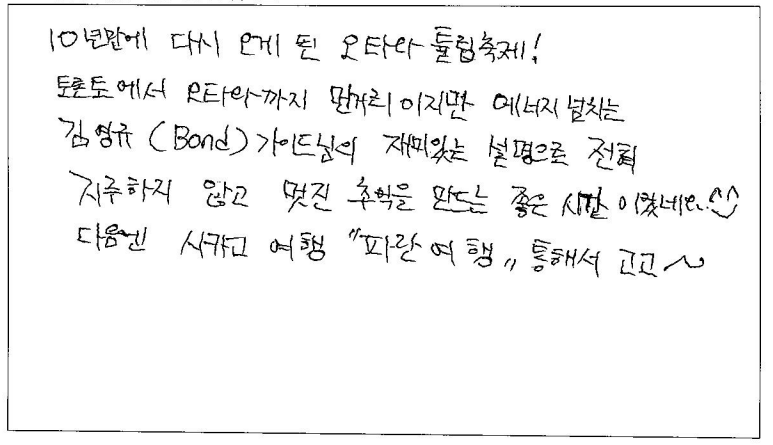 10년만에 다시 오게 된 오타와 튤립축제!
토론토에서 오타와까지 먼거리이지만 에너지 넘치는
김영규 (Bond) 가이드님의 재미있는 설명으로 전혀
지루하지 않고 멋진 추억을 만드는 좋은 시간이었네요.^^
다음엔 시카고 여행 "파란여행" 통해서 고고~